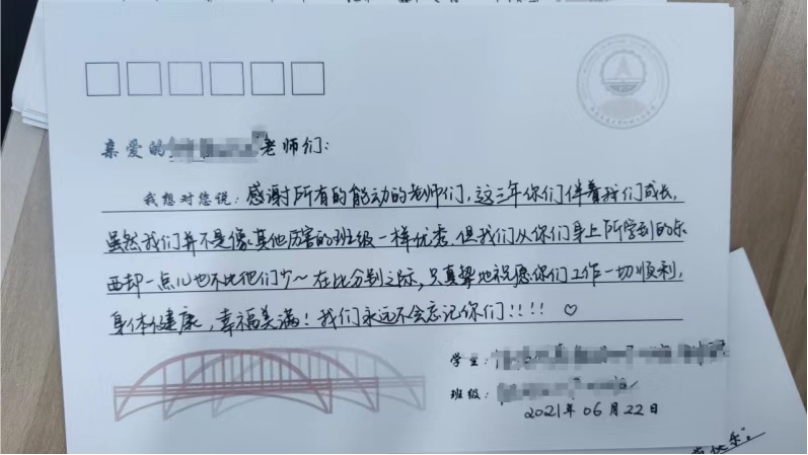 亲爱的老师们：
我想对您说：感谢所有的能动的老师们，这三年你们伴着我们成长，
虽然我们并不是像其他厉害的班级一样优秀，但我们从你们身上所学到的东
西却一点儿也不比他们少～在此分别之际，只真挚地祝愿你们工作一切顺利，
身体健康，幸福美满！我们永远不会忘记你们!!!! ♡
学生：
班级：
2021年 06月22日
快乐！